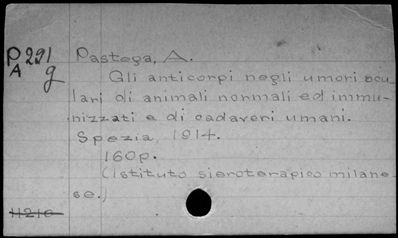 P291 Pastega, A.
A g
Gli anticorpi negli umori ocu-
lari di animali normali ed immu-
nizzati e di cadaveri umani.
Spezia, 1914.
160p.
(Istituto sieroterapico milane-
se.)
11216